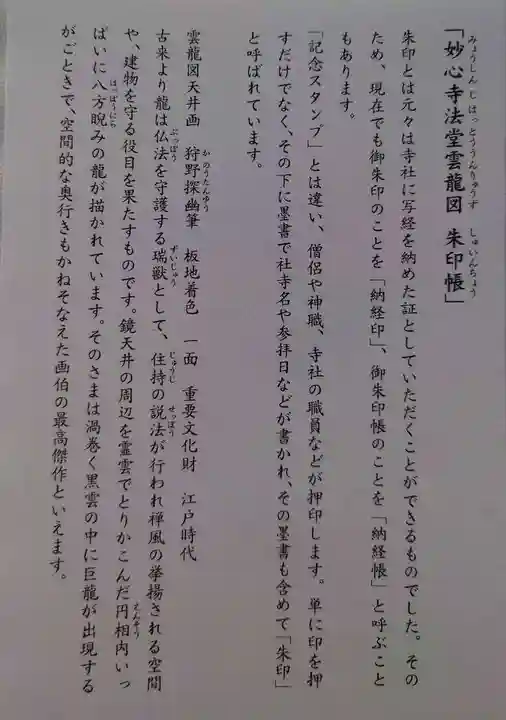 「妙心寺法堂雲龍図　朱印帳」
みょうしんじはっとううんりゅうず　しゅいんちょう
朱印とは元々は寺社に写経を納めた証としていただくことができるものでした。その
ため、現在でも御朱印のことを「納経印」、御朱印帳のことを「納経帳」と呼ぶこと
もあります。
「記念スタンプ」とは違い、僧侶や神職、寺社の職員などが押印します。単に印を押
すだけでなく、その下に墨書で社寺名や参拝日などが書かれ、その墨書も含めて「朱印」
と呼ばれています。
雲龍図天井画　狩野探幽筆　板地着色　一面　重要文化財　江戸時代
かのうたんゆう
古来より龍は仏法を守護する瑞獣として、住持の説法が行われ禅風の挙揚される空間
ぶっぽう　ずいじゅう　じゅうじ　せっぽう
や、建物を守る役目を果たすものです。鏡天井の周辺を霊雲でとりかこんだ円相内いっ
えんそう
ぱいに八方睨みの龍が描かれています。そのさまは渦巻く黒雲の中に巨龍が出現する
はっぽうにら
がごときで、空間的な奥行きもかねそなえた画伯の最高傑作といえます。